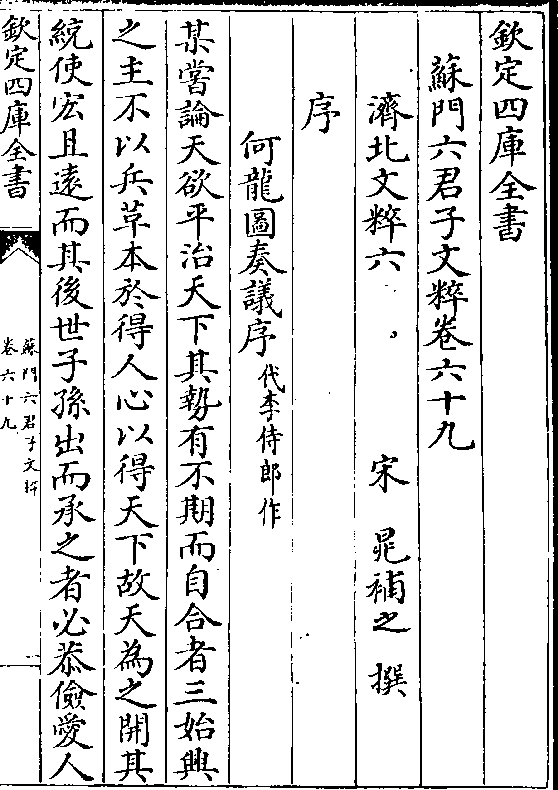 欽定四庫全書
蘇門六君子文粹卷六十九
濟北文粹六　宋　晁補之　撰
序
何龍圖奏議序代李侍郎作
某嘗論天欲平治天下其勢有不期而自合者三始興
之主不以兵草本於得人心以得天下故天為之開其
統使宏且遠而其後世子孫出而承之者必恭儉愛人
欽定四庫全書
蘇門六君子文粹
卷六十九
一